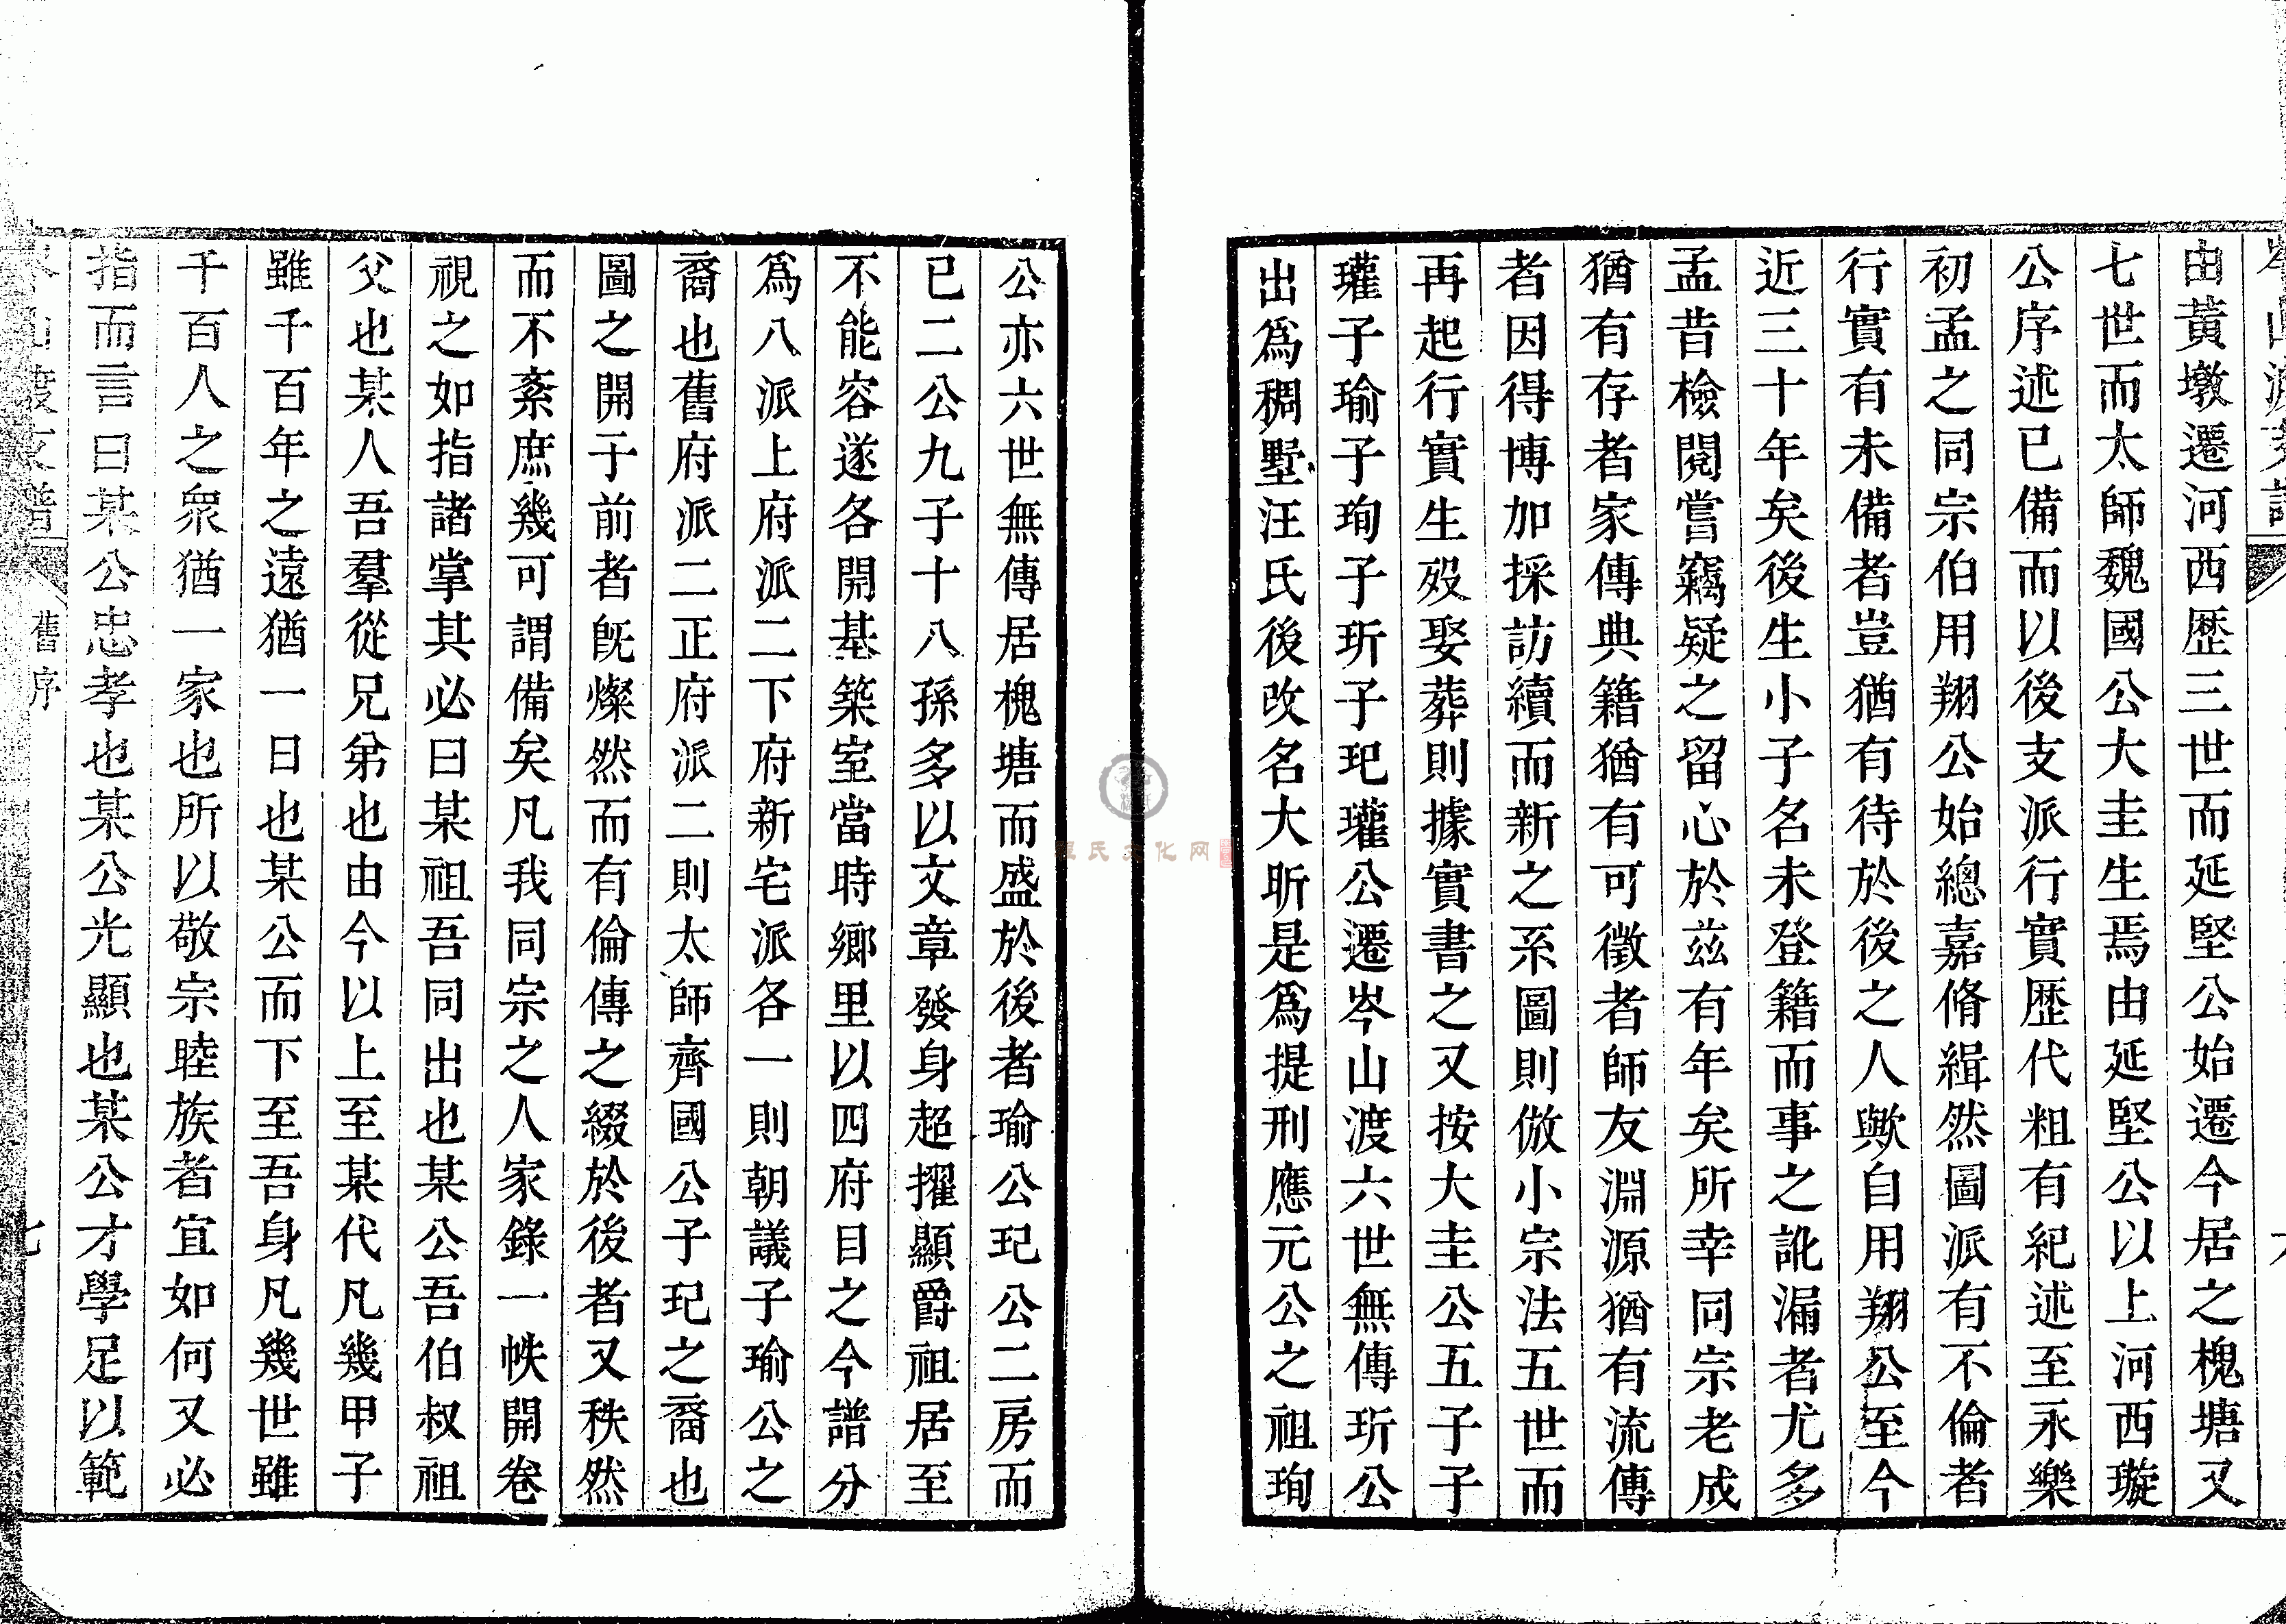 由黃墩遷河西歷三世而延堅公始遷今居之槐塘又
七世而太師魏國公大圭生焉由延堅公以上河西璇
公序述已備而以後支派行實歷代粗有紀述至永樂
初孟之同宗伯用翔公始總嘉脩緝然圖派有不倫者
行實有未備者豈猶有待於後之人歟自用翔公至今
近三十年矣後生小子名未登籍而事之訛漏者尤多
孟昔檢閱嘗竊疑之留心於茲有年矣所幸同宗老成
猶有存者家傳典籍猶有可徵者師友淵源猶有流傳
者因得博加採訪續而新之系圖則倣小宗法五世而
再起行實生歿娶葬則據實書之又按大圭公五子子
瓘子瑜子珣子玪子玘瓘公遷岑山渡六世無傳玪公
出爲稠墅汪氏後改名大昕是爲提刑應元公之祖珣
公亦六世無傳居槐塘而盛於後者瑜公玘公二房而
已二公九子十八孫多以文章發身超擢顯爵祖居至
不能容遂各開基築室當時鄉里以四府目之今譜分
爲八派上府派二下府新宅派各一則朝議子瑜公之
裔也舊府派二正府派二則太師齊國公子玘之裔也
圖之開于前者旣燦然而有倫傳之綴於後者又秩然
而不紊庶幾可謂備矣凡我同宗之人家錄一帙開卷
視之如指諸掌其必曰某祖吾同出也某公吾伯叔祖
父也某人吾羣從兄弟也由今以上至某代凡幾甲子
雖千百年之遠猶一日也某公而下至吾身凡幾世雖
千百人之眾猶一家也所以敬宗睦族者宜如何又必
指而言曰某公忠孝也某公光顯也某公才學足以範
舊序
七
程氏文化网